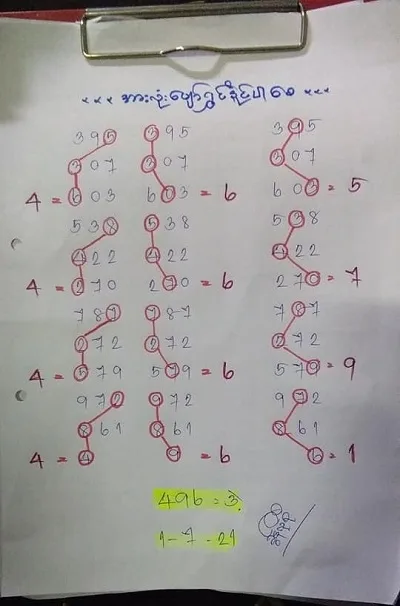 ××× အားလုံးပျော်ရွှင်နိုင်ပါစေ ×××
395 395 395
307 307 307
4 = 603 603 = 6 603 = 5
538 538 538
422 422 422
4 = 270 270 = 6 270 = 7
787 787 787
272 272 272
4 = 579 579 = 6 579 = 9
972 972 972
861 861 861
4 = 4 9 = 6 6 = 1
496 = 3.
1-7-21